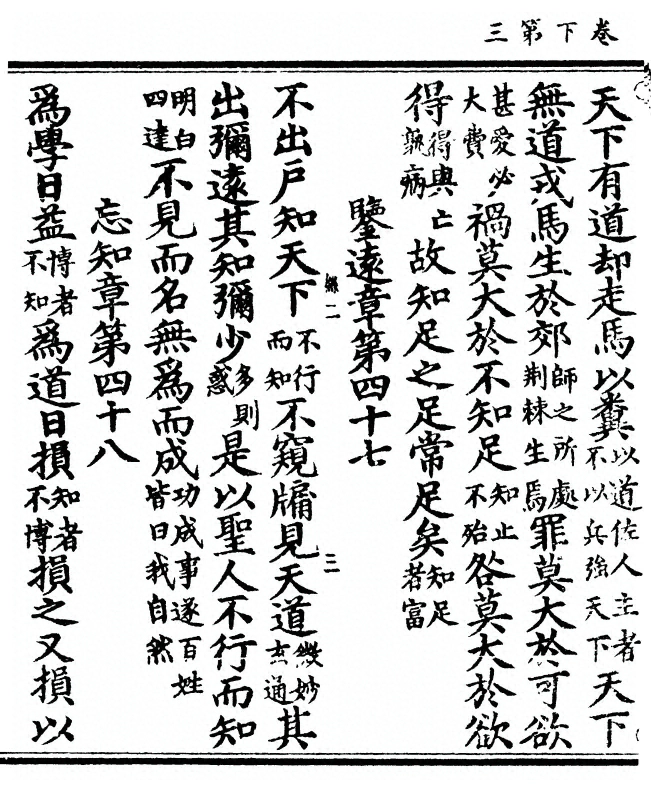 卷下第三
天下有道却走馬以糞以道佐人主者不以兵強天下天下
無道戎馬生於郊師之所處荆棘生焉罪莫大於可欲
甚愛必大費禍莫大於不知足知止不殆咎莫大於欲
得得與亡孰病故知足之足常足矣知足者富
鑒遠章第四十七
不出戶知天下不行而知不窺牖見天道微妙玄通其
出彌遠其知彌少多則惑是以聖人不行而知
明白四達不見而名無爲而成功成事遂百姓皆曰我自然
忘知章第四十八
爲學日益博者不知爲道日損知者不博損之又損以